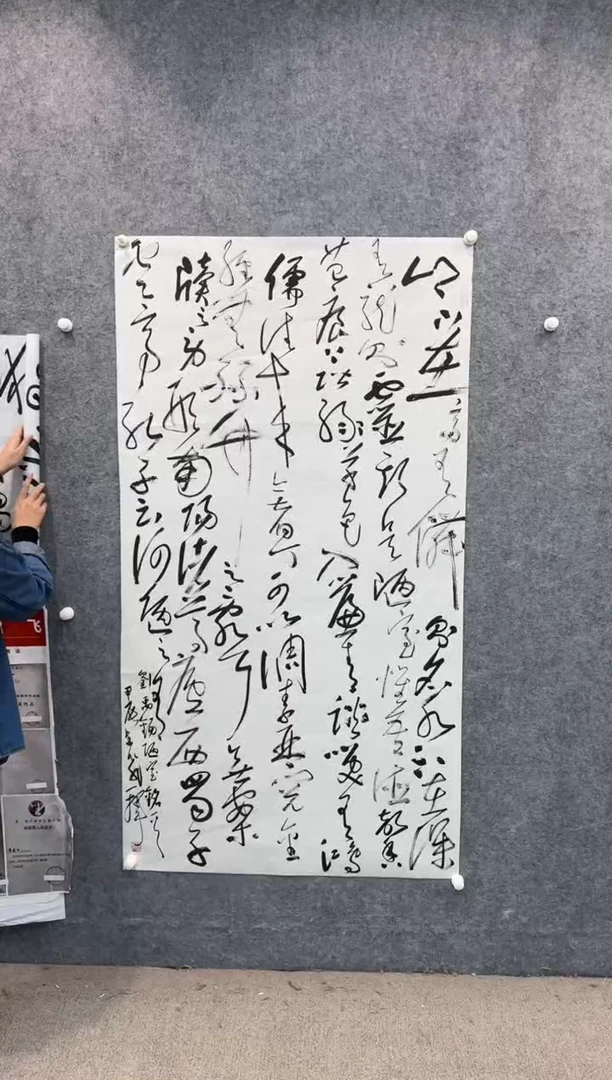 山不在高有僊則名水不在深
有龍則靈斯是陋室惟吾德馨
苔痕上階綠草色入簾青談笑有鴻
儒往來無白丁可以調素琴閱金
經無絲竹之亂耳無案
牘之勞形南陽諸葛廬西蜀子
雲亭孔子云何陋之有
劉禹錫陋室銘
甲辰年